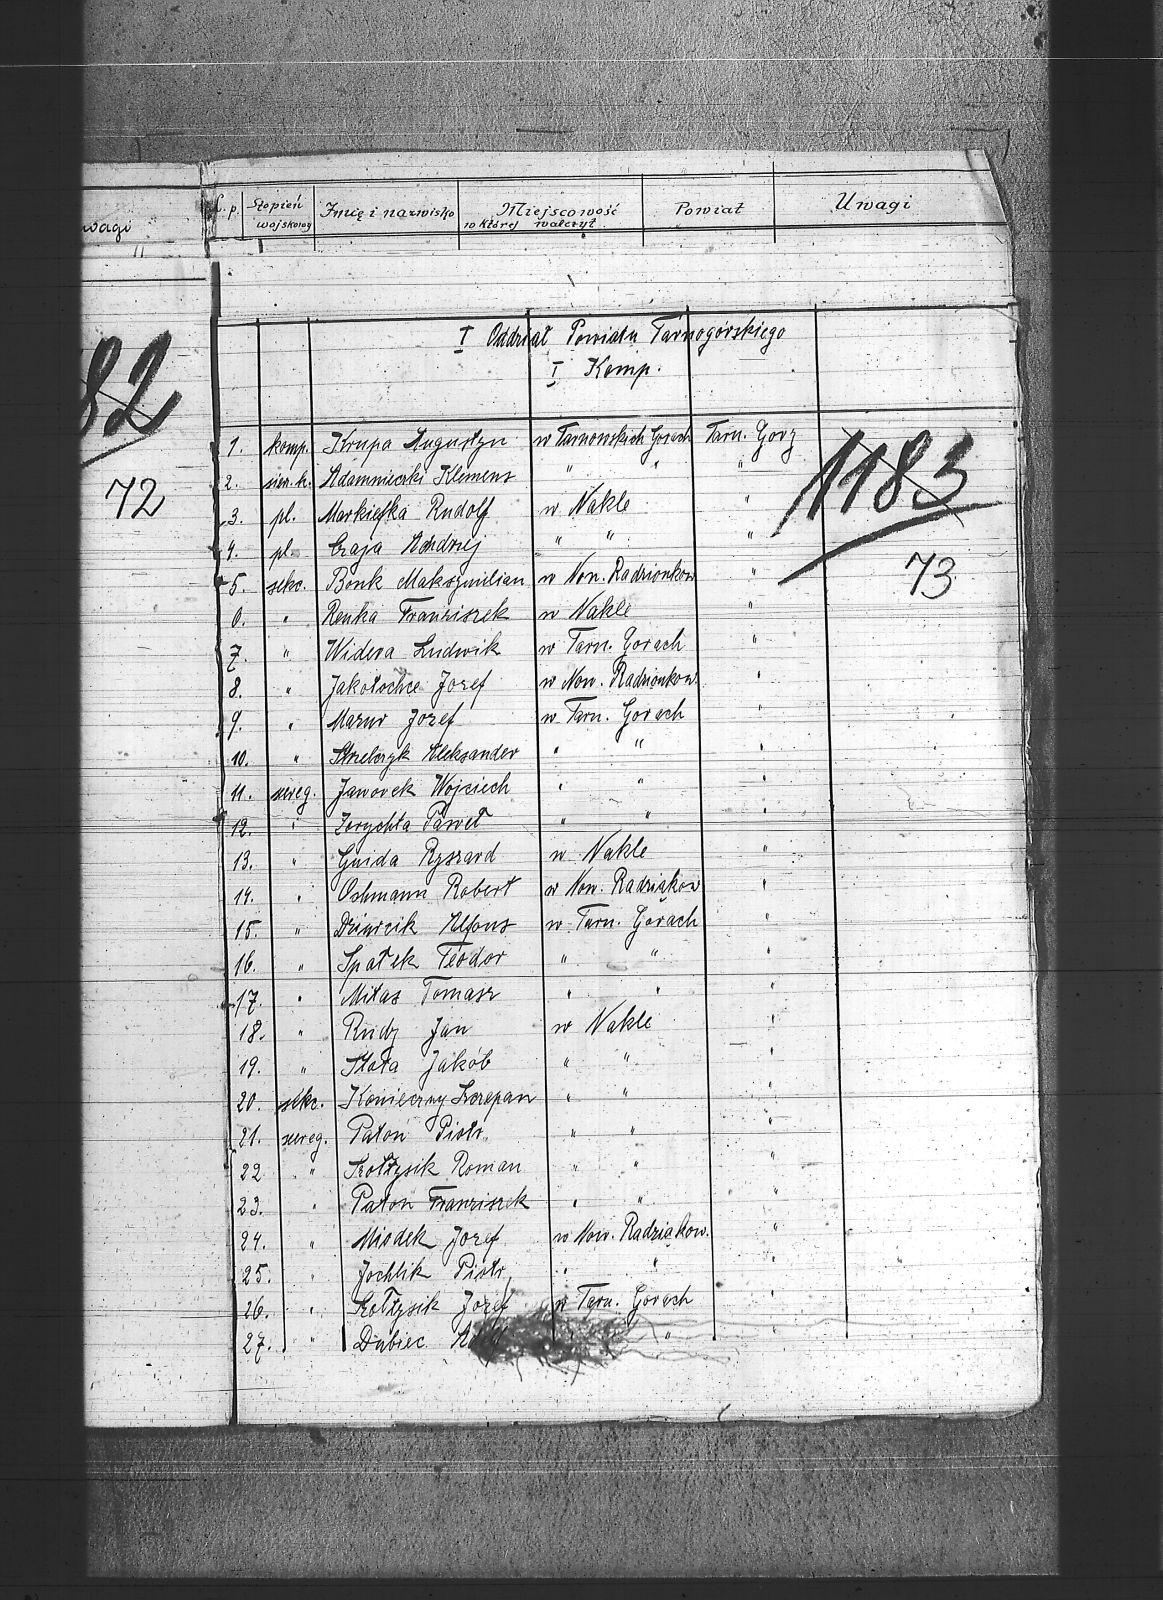 wagi
"
82
72
L. p. Stopień wojskowy Imię i nazwisko Miejscowość w której walczył Powiat Uwagi
I Oddział Powiatu Tarnogórskiego
I Komp.
1. komp. Krupa Augustyn w Tarnowskich Gorach Tarn. Gory
1183
2. sier. h. Adamnieczki Klemens " " "
3. pl. Markiefka Rudolf w Nakle "
4. pl. Czaja Andrzej " " "
73
5. sekc. Bonk Maksymilian w Now. Radzionkow "
6. " Renka Franziszek w Nakle "
7. " Widera Ludwik w Tarn. Gorach "
8. " Jakotochce Jozef w Now. Radzionkow "
9. " Mazur Jozef w Tarn. Gorach "
10. " Aleksander " " "
11. szereg. Jaworek Wojciech " " "
12. " Zorychta Paweł " " "
13. " Gnida Ryszard w Nakle "
14. " Oshmann Robert w Now. Radziąkow "
15. " Alfons w Tarn. Gorach "
16. " Spałek Teodor " " "
17. " Mitas Tomasz " " "
18. " Rudy Jan w Nakle "
19. " Słota Jakób " " "
20. sekc. Konieczny Szczepan " " "
21. szereg. Patoń Piotr " " "
22 " Szołtysik Roman " " "
23. " Patoń Franziszek " " " "
24. " Miodek Jozef w Now. Radziąkow. "
25. " Jochlik Piotr " " "
26. " Szołtysik Jozef w Tarn. Gorach "
27. " Dubiec " "